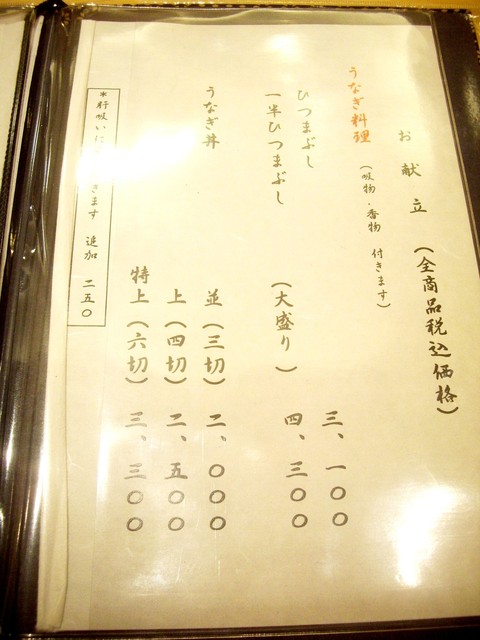 お献立 (全商品税込価格)
うなぎ料理 (吸物・香物 付きます)
ひつまぶし 三、一〇〇
一半ひつまぶし (大盛り) 四、三〇〇
うなぎ丼 並(三切) 二、〇〇〇
上(四切) 二、五〇〇
特上(六切) 三、三〇〇
*肝吸いに きます 追加 二五〇